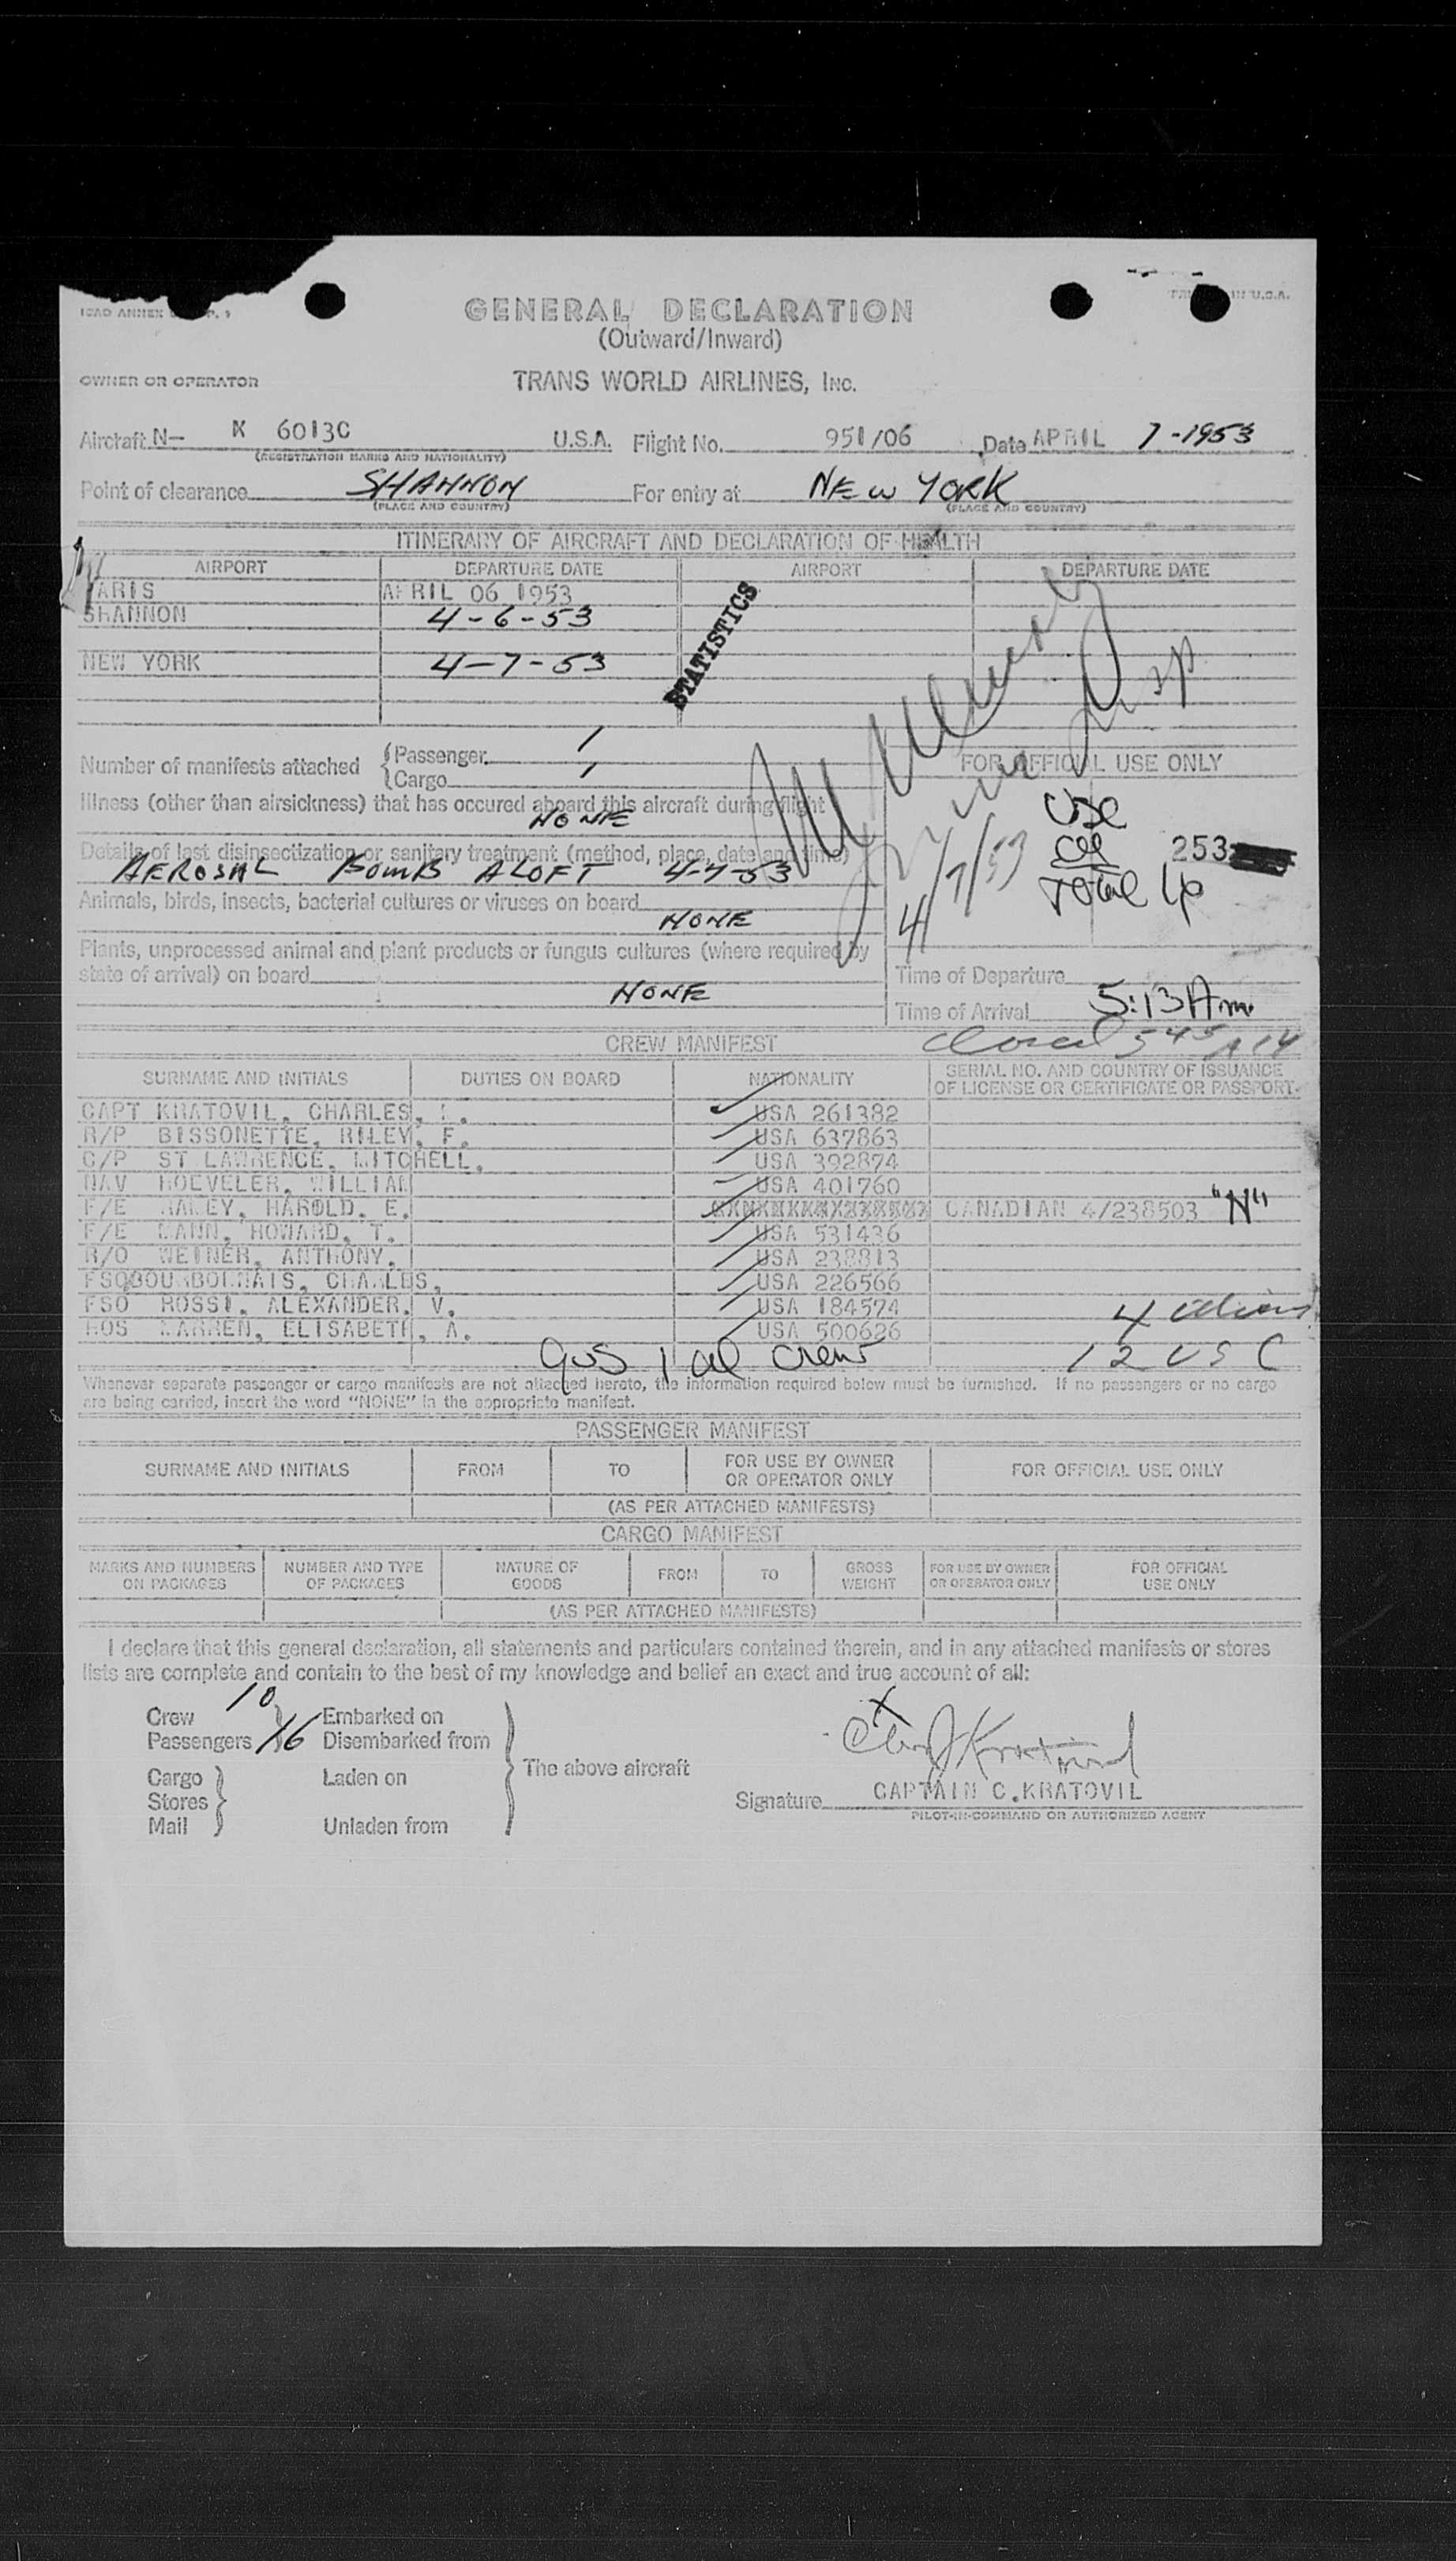 ICAO ANNEX P. 9
IN U.S.A.
GENERAL DECLARATION
(Outward/Inward)
OWNER OR OPERATOR
TRANS WORLD AIRLINES, INC.
Aircraft N— N 6013C U.S.A. Flight No. 951/06 Date APRIL 7-1953
(REGISTRATION MARKS AND NATIONALITY)
Point of clearance SHANNON For entry at NEW YORK
(PLACE AND COUNTRY) (PLACE AND COUNTRY)
ITINERARY OF AIRCRAFT AND DECLARATION OF HEALTH
AIRPORT DEPARTURE DATE AIRPORT DEPARTURE DATE
PARIS APRIL 06 1953
SHANNON 4-6-53
STATISTICS
NEW YORK 4-7-53
Number of manifests attached {Passenger 1
{Cargo 1
FOR OFFICIAL USE ONLY
Illness (other than airsickness) that has occured aboard this aircraft during flight
NONE
USC
Details of last disinsectization or sanitary treatment (method, place, date and time)
AEROSAL BOMB ALOFT 4-7-53
253
Total 16
4/7/53
Animals, birds, insects, bacterial cultures or viruses on board
NONE
Plants, unprocessed animal and plant products or fungus cultures (where required by
state of arrival) on board
NONE
Time of Departure
Time of Arrival 5:13 Am
CREW MANIFEST
SURNAME AND INITIALS DUTIES ON BOARD NATIONALITY SERIAL NO. AND COUNTRY OF ISSUANCE
OF LICENSE OR CERTIFICATE OR PASSPORT
CAPT KRATOVIL, CHARLES, USA 261382
R/P BISSONETTE, RILEY, F. USA 637863
C/P ST LAWRENCE, MITCHELL, USA 392874
NAV HOEVELER, WILLIAM USA 401760
F/E HAROLD, E. CANADIAN 4/238503 "N"
F/E MANN, HOWARD, T. USA 531436
R/O WEINER, ANTHONY, USA 238813
FSO CHARLES, USA 226566
FSO ROSSI, ALEXANDER, V. USA 184574
HOS WARREN, ELISABETH, A. USA 500626
4 aliens
9 US 1 al crew
12 USC
Whenever separate passenger or cargo manifests are not attached hereto, the information required below must be furnished. If no passengers or no cargo
are being carried, insert the word "NONE" in the appropriate manifest.
PASSENGER MANIFEST
SURNAME AND INITIALS FROM TO FOR USE BY OWNER
OR OPERATOR ONLY FOR OFFICIAL USE ONLY
(AS PER ATTACHED MANIFESTS)
CARGO MANIFEST
MARKS AND NUMBERS
ON PACKAGES NUMBER AND TYPE
OF PACKAGES NATURE OF
GOODS FROM TO GROSS
WEIGHT FOR USE BY OWNER
OR OPERATOR ONLY FOR OFFICIAL
USE ONLY
(AS PER ATTACHED MANIFESTS)
I declare that this general declaration, all statements and particulars contained therein, and in any attached manifests or stores
lists are complete and contain to the best of my knowledge and belief an exact and true account of all:
Crew 10 Embarked on
Passengers 16 Disembarked from
The above aircraft
Cargo Laden on
Stores
Mail Unladen from
X
Signature CAPTAIN C.KRATOVIL
PILOT-IN-COMMAND OR AUTHORIZED AGENT